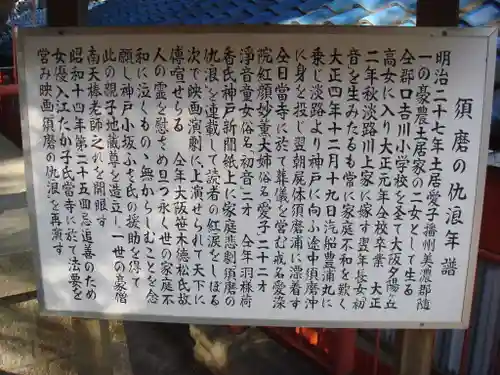 須磨の仇浪年譜
明治二十七年土居愛子播州美濃郡随
一の豪農土居家の二女として生る
仝郡口吉川小学校を全て大阪夕陽ヶ丘
高女に入り大正元年仝校卒業 大正
二年秋淡路川上家に嫁す翌年長女初
音を生みたるも常に家庭不和を歎く
大正四年十二月十九日汽船豊浦丸に
乗じ淡路より神戸に向ふ途中須磨沖
に身を投じ翌朝屍体須磨浦に漂着す
仝日當寺に於て葬儀を営む戒名愛染
院紅顔妙童大姉俗名愛子二十二才
浄音童女俗名初音二才 仝年羽様荷
香氏神戸新聞紙上に家庭悲劇須磨の
仇浪を連載して読者の紅涙をしぼる
次で映画演劇に上演せられて天下に
傳喧せらる 仝年大阪笹木徳松氏故
人の霊を慰さめ旦つ永く世の家庭不
和に泣くもの、無からしむことを念
願し神戸小坂ふさ氏の援助を得て
此の親子地蔵尊を造立し一世の豪僧
南天棒老師之れを開眼す
昭和十四年第二十五回忌追善のため
女優入江たか子氏當寺に於て法要を
営み映画須磨の仇浪を再演す